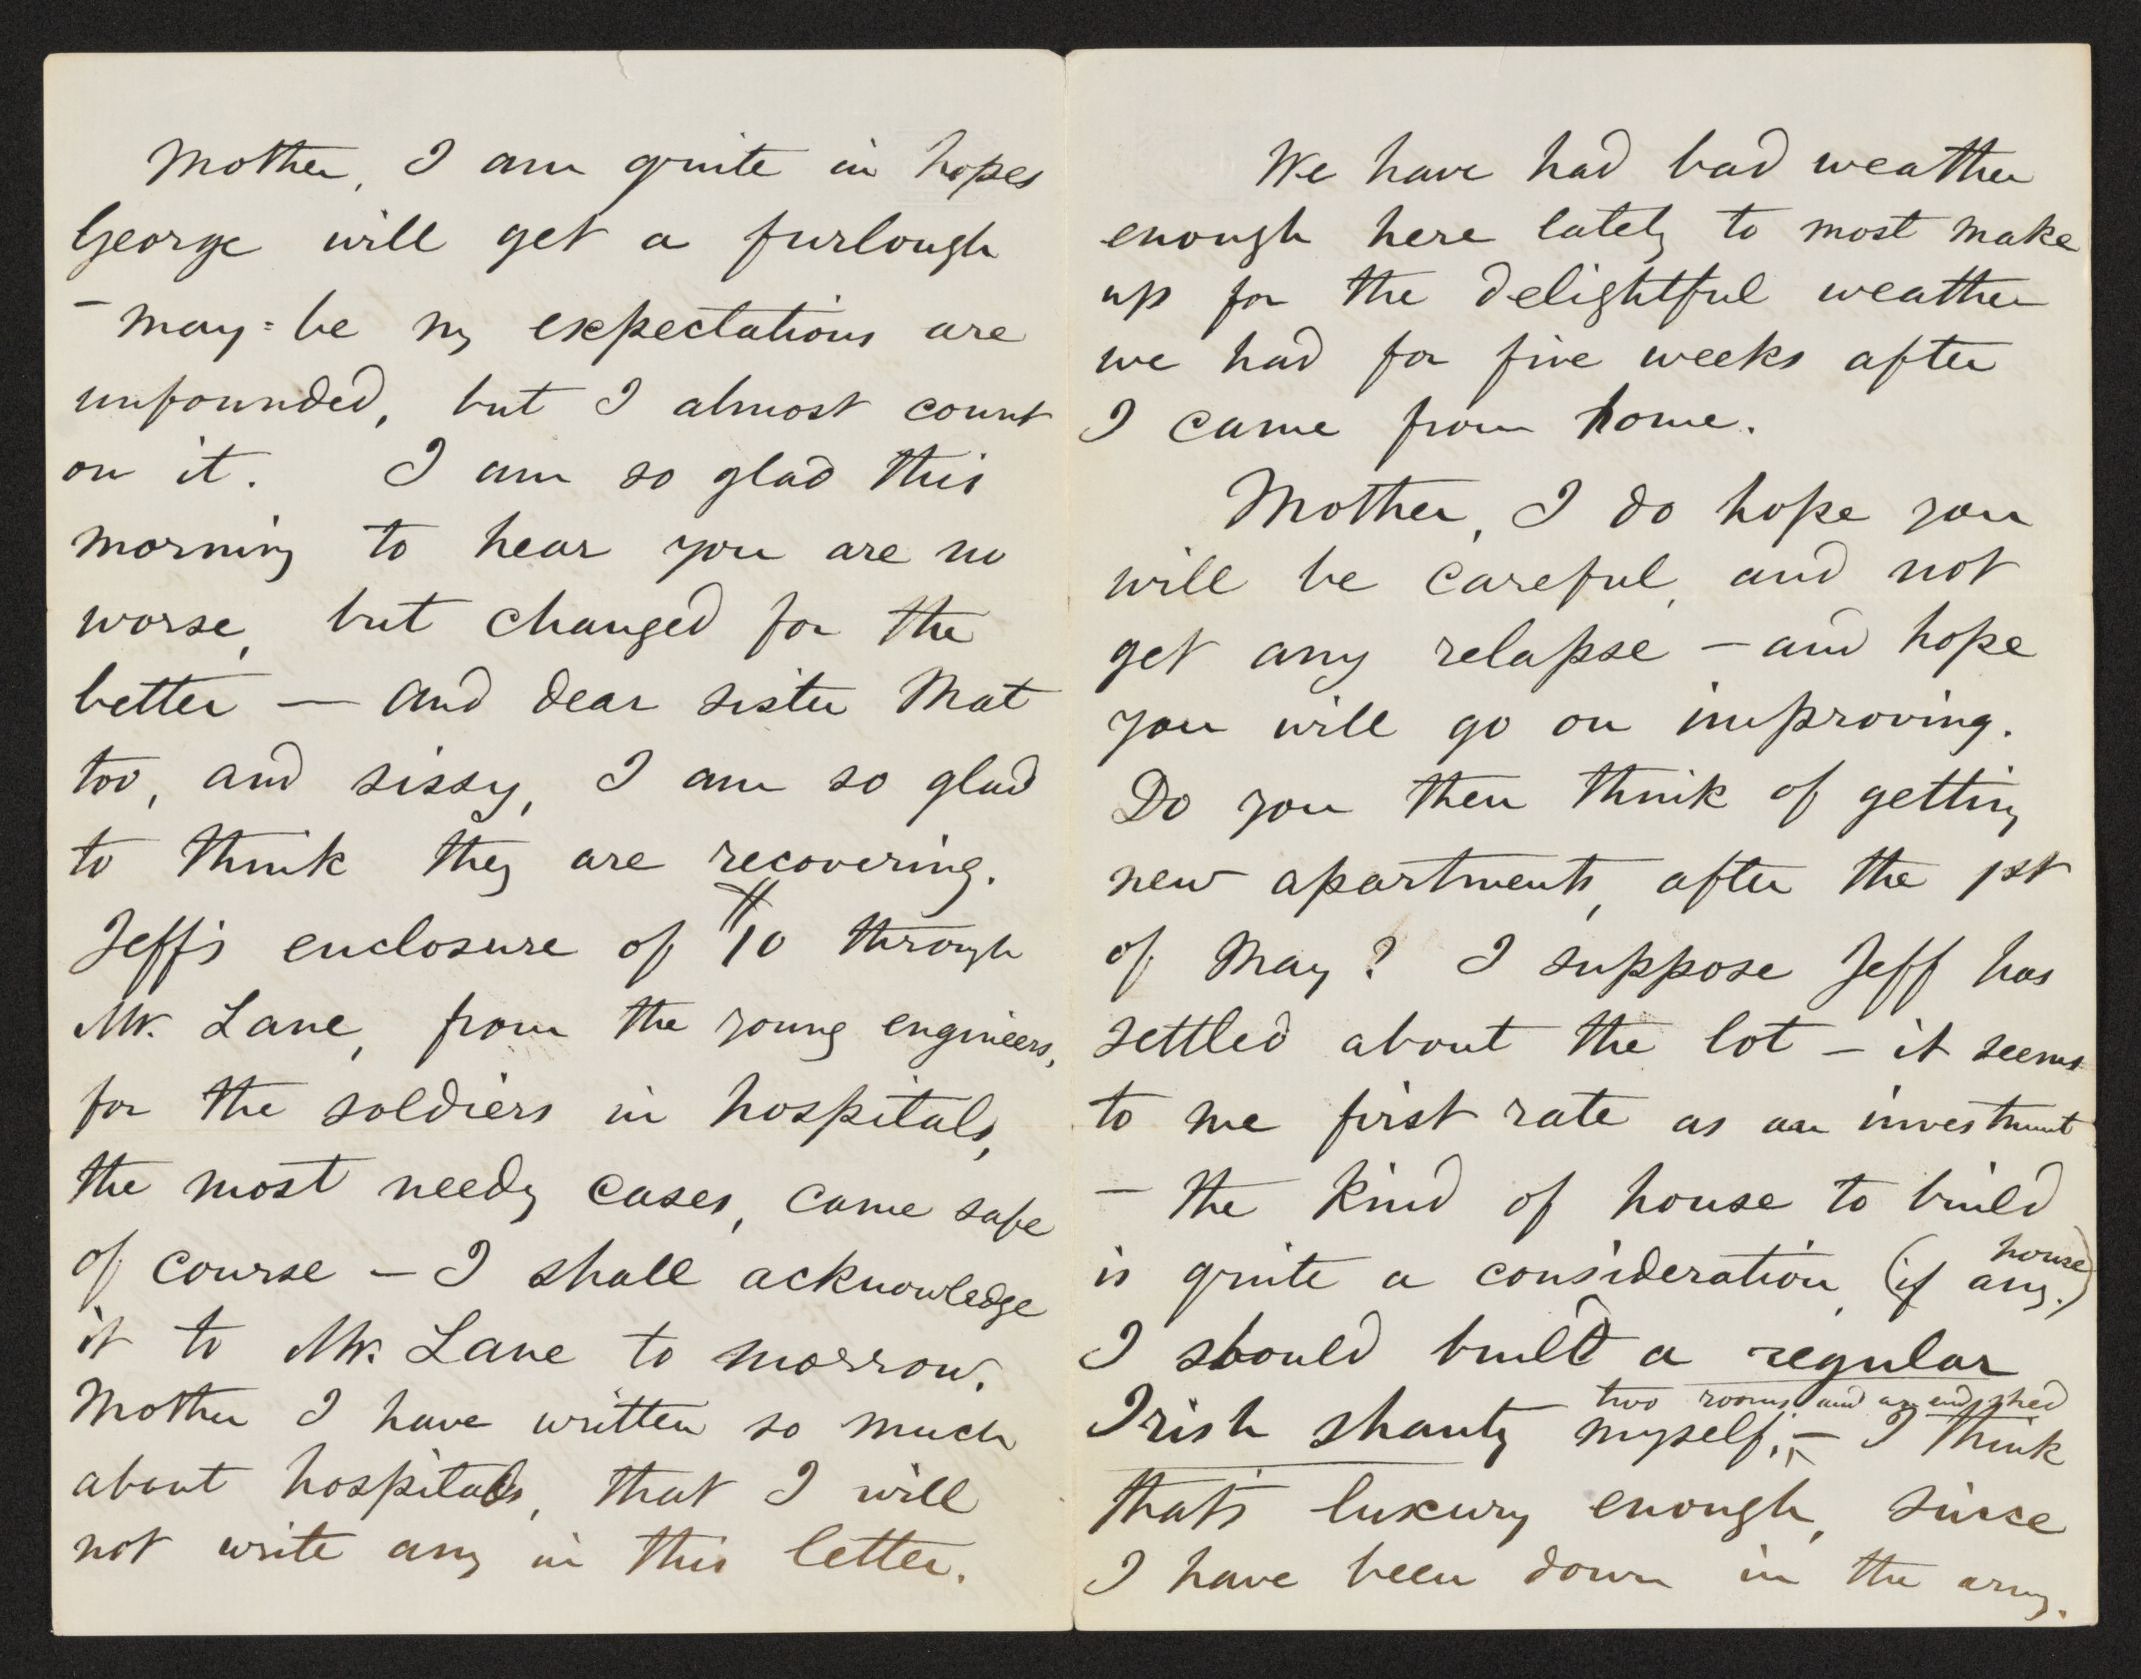 Mother, I am quite in hopes
George will get a furlough
– may-be my expectations are
unfounded, but I almost count
on it. I am so glad this
morning to hear you are no
worse, but changed for the
better — and dear sister Mat
too, and sissy, I am so glad
to think they are recovering.
Jeff's enclosure of $10 through
Mr. Lane, from the young engineers,
for the soldiers in hospitals,
the most needy cases, came safe
of course – I shall acknowledge
it to Mr. Lane to morrow.
Mother I have written so much
about hospitals, that I will
not write any in this letter.
We have had bad weather
enough here lately to most make
up for the delightful weather
we had for five weeks after
I came from home.
Mother, I do hope you
will be careful, and not
get any relapse – and hope
you will go on improving.
Do you then think of getting
new apartments, after the 1st
of May? I suppose Jeff has
settled about the lot – it seems
to me first rate as an investment
– the kind of house to build
is quite a consideration, (if any
house.)
I should build a regular
Irish shanty myself; –
two rooms and an end shed
I think
that's luxury enough, since
I have been down in the army.